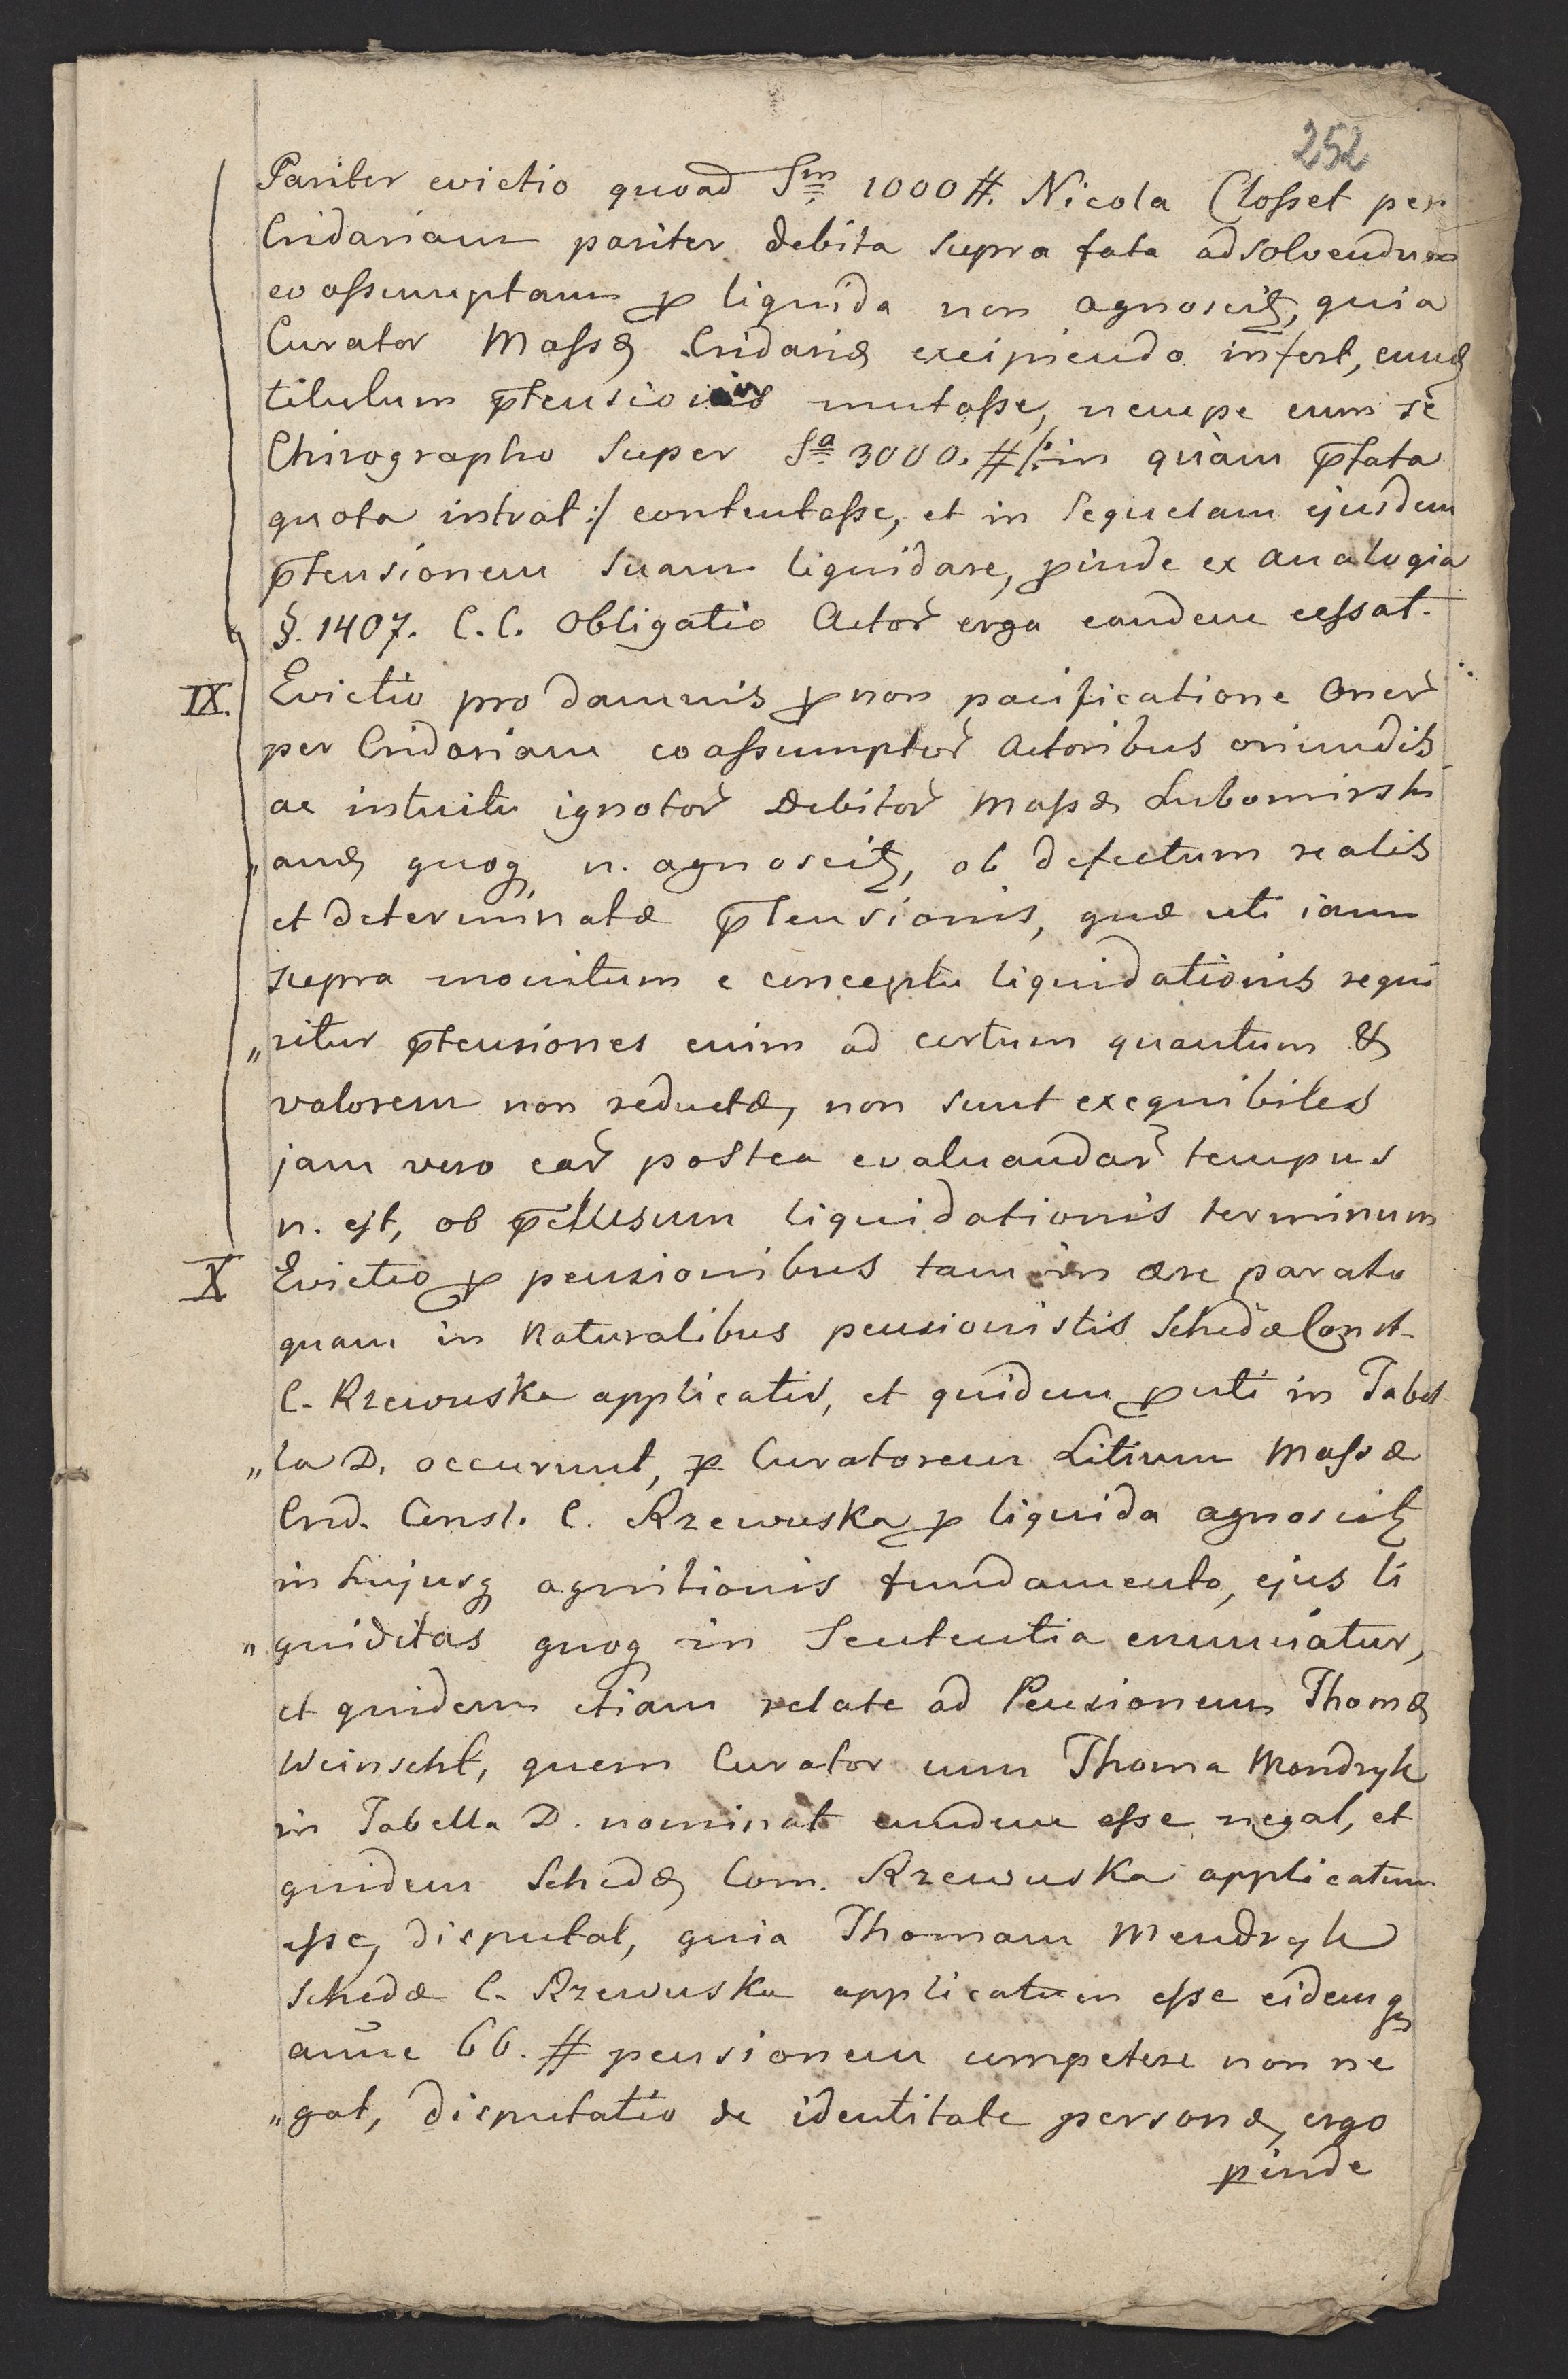 252
Pariter evictio quoad Sm̄ 1000 #. Nicola Closset per
Cridariam pariter debita supra fata adsolvendum
coassumptam p liquida non agnoscitȝ, quia
Curator Massæ Cridariæ excipiendo infert, eund
titulum p̄tensionis mutasse, nempe eum se
Chirographo super Sa 3000. # /: in quam p̄fata
quota intrat :/ contentasse, et in sequelam ejusdem
p̄tensionem suam liquidare, pinde ex analogia
§. 1407. C.C. Obligatio Actor̃ erga eandem cessat.
IX. Evictio pro damnis p non pacificatione Oner̃
per Cridariam coassumptor̃ Actoribus oriundis
ac intuitu ignotor̃ Debitor̃ Massæ Lubomirski
„anæ quoq n. agnoscitȝ, ob defectum realis
et determinatæ p̄tensionis, quæ uti iam
supra monitum e conceptu liquidationis requi
„ritur p̄tensiones enim ad certum quantum &
valorem non reductæ, non sunt exequibiles
jam vero ear̃ postea evaluandar̃ tempus
n. est, ob p̄clusum liquidationis terminum
X Evictio p pensionibus tam in ære parato
quam in Naturalibus pensionistis Schedæ Const.
C. Rzewuska applicatis, et quidem puti in Tabel
„la D. occurunt, p Curatorem Litium Massæ
Crid. Const. C. Rzewuska p liquida agnoscitȝ
in hujusq agnitionis fundamento, ejus li
„quiditas quoq in Sententia enunciatur,
et quidem etiam relate ad Pensionem Thomæ
Weinscht, quem Curator cum Thoma Mondryk
in Tabella D. nominat eundem esse negat, et
quidem Schedæ Com. Rzewuska applicatum
esse, disputat, quia Thomam Mendryk
Schedæ C. Rzewuska applicatum esse eidemq
anūe 66. # pensionem competere non ne
„gat, disputatio de identitate personæ, ergo
pinde